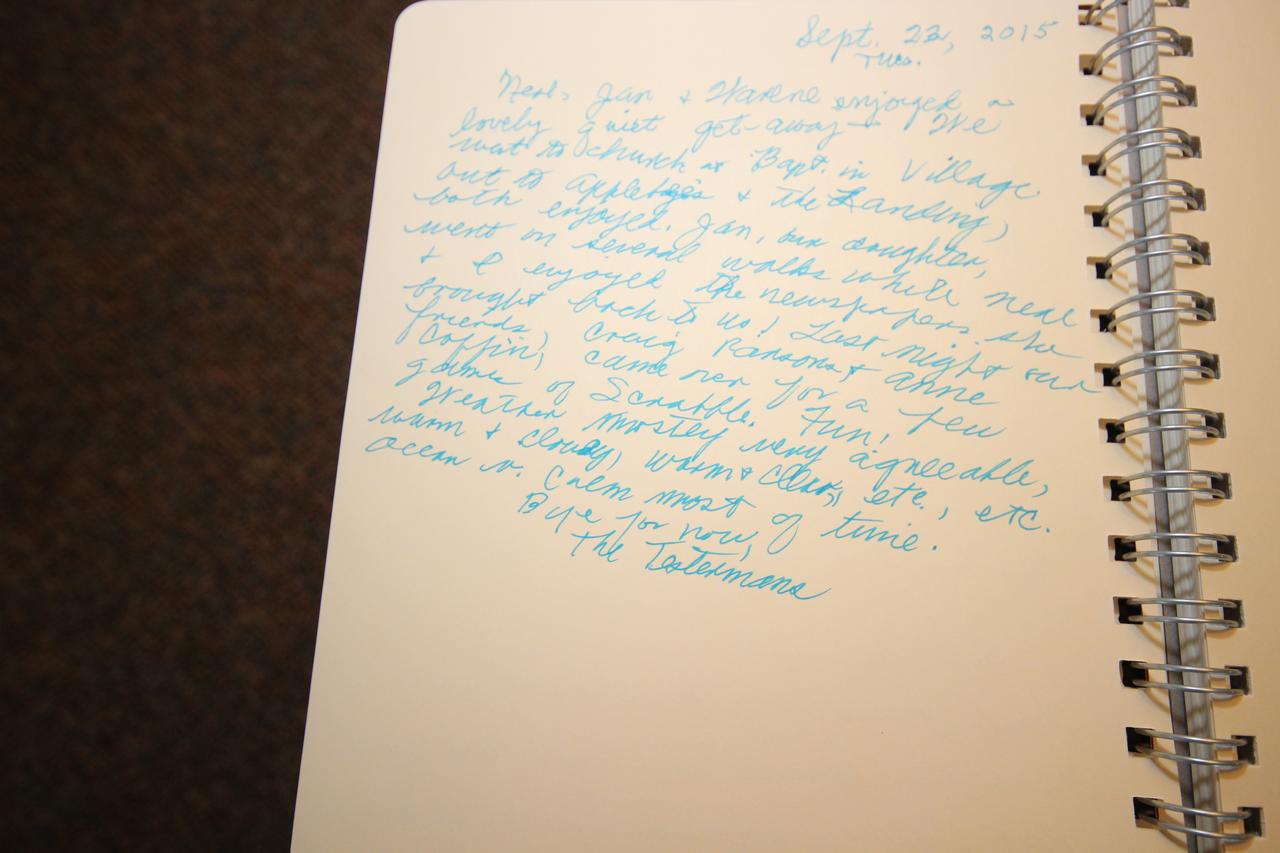 Sept. 22, 2015
Tues.
Neal, Jan & Warene enjoyed a
lovely quiet get-away - We
went to church at Bapt. in Village
out to Applebee's & the Landing,
both enjoyed. Jan, our daughter,
went on several walks while Neal
& I enjoyed the newspapers she
brought back to us! Last night our
friends, Craig Ransom & Anne
Coffin, came over for a few
games of Scrabble. Fun!
Weather mostly very agreeable,
warm & cloudy, warm & clear, etc., etc.
Ocean v. calm most of time.
Bye for now,
The Testermans